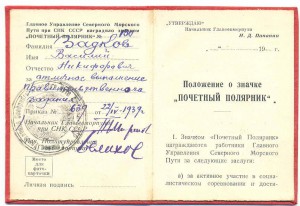 Главное Управление Северного Морского
Пути при СНК СССР наградило значком
"ПОЧЕТНЫЙ ПОЛЯРНИК" №
Фамилия Бадков
Имя Василий
Отчество Никифорович
За отличное выполнение
правительственного
задания
Приказ № 22/IV-1939г.
Начальник Главсевморпути
при СНК СССР
Место
для
фото-
карточки
Личная подпись
"УТВЕРЖДАЮ"
Начальник Главсевморпути
И. Д. Папанин
" " 19 г.
Положение о значке
„ПОЧЕТНЫЙ ПОЛЯРНИК".
1. Значком „Почетный Полярник"
награждаются работники Главного
Управления Северного Морского
Пути за следующие заслуги:
а) за активное участие в социа-
листическом соревновании и дости-